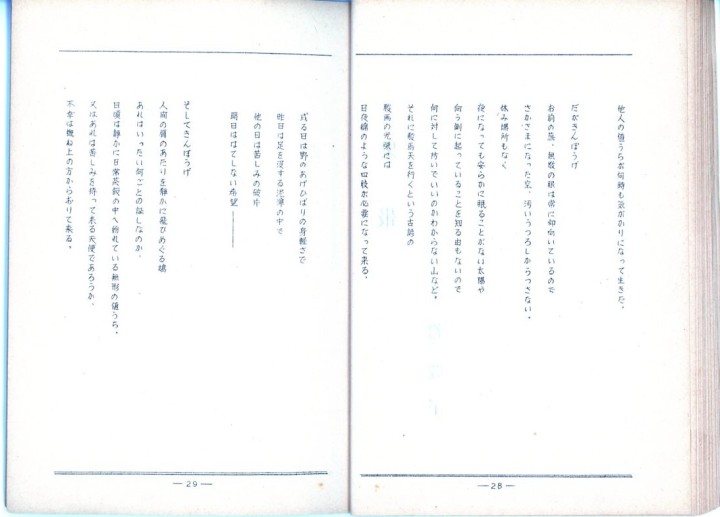 他人の値うちが何時も気がかりになって生きた。
だがきんぽうげ
お前の茎、無数の眼は常に仰向いているので
さかさまになった空、汚いうつろしからっさない。
休み場所もなく
夜になっても安らかに眠ることがない太陽や
向う側に起っていることを知る由もないので
何に対して防いでいいのかわからない山など。
それに 天を行くという古詩の
の光儀には
日夜綿のような四肢が必要になって来る。
—28—
或る日は野のあげひばりの身軽さで
昨日は足を浸する泥濘の中で
他の日は苦しみの破片
明日ははてしない希望————
そしてきんぽうげ
人間の肩のあたりを静かに飛びめぐる蝶
あれはいったい何ごとの証しなのか。
日頃は静かに日常茶飯の中へ紛れている無形の値うち。
又はあれは苦しみを持って来る天使であろうか。
不幸は幾ら上の方からおりて来る。
—29—